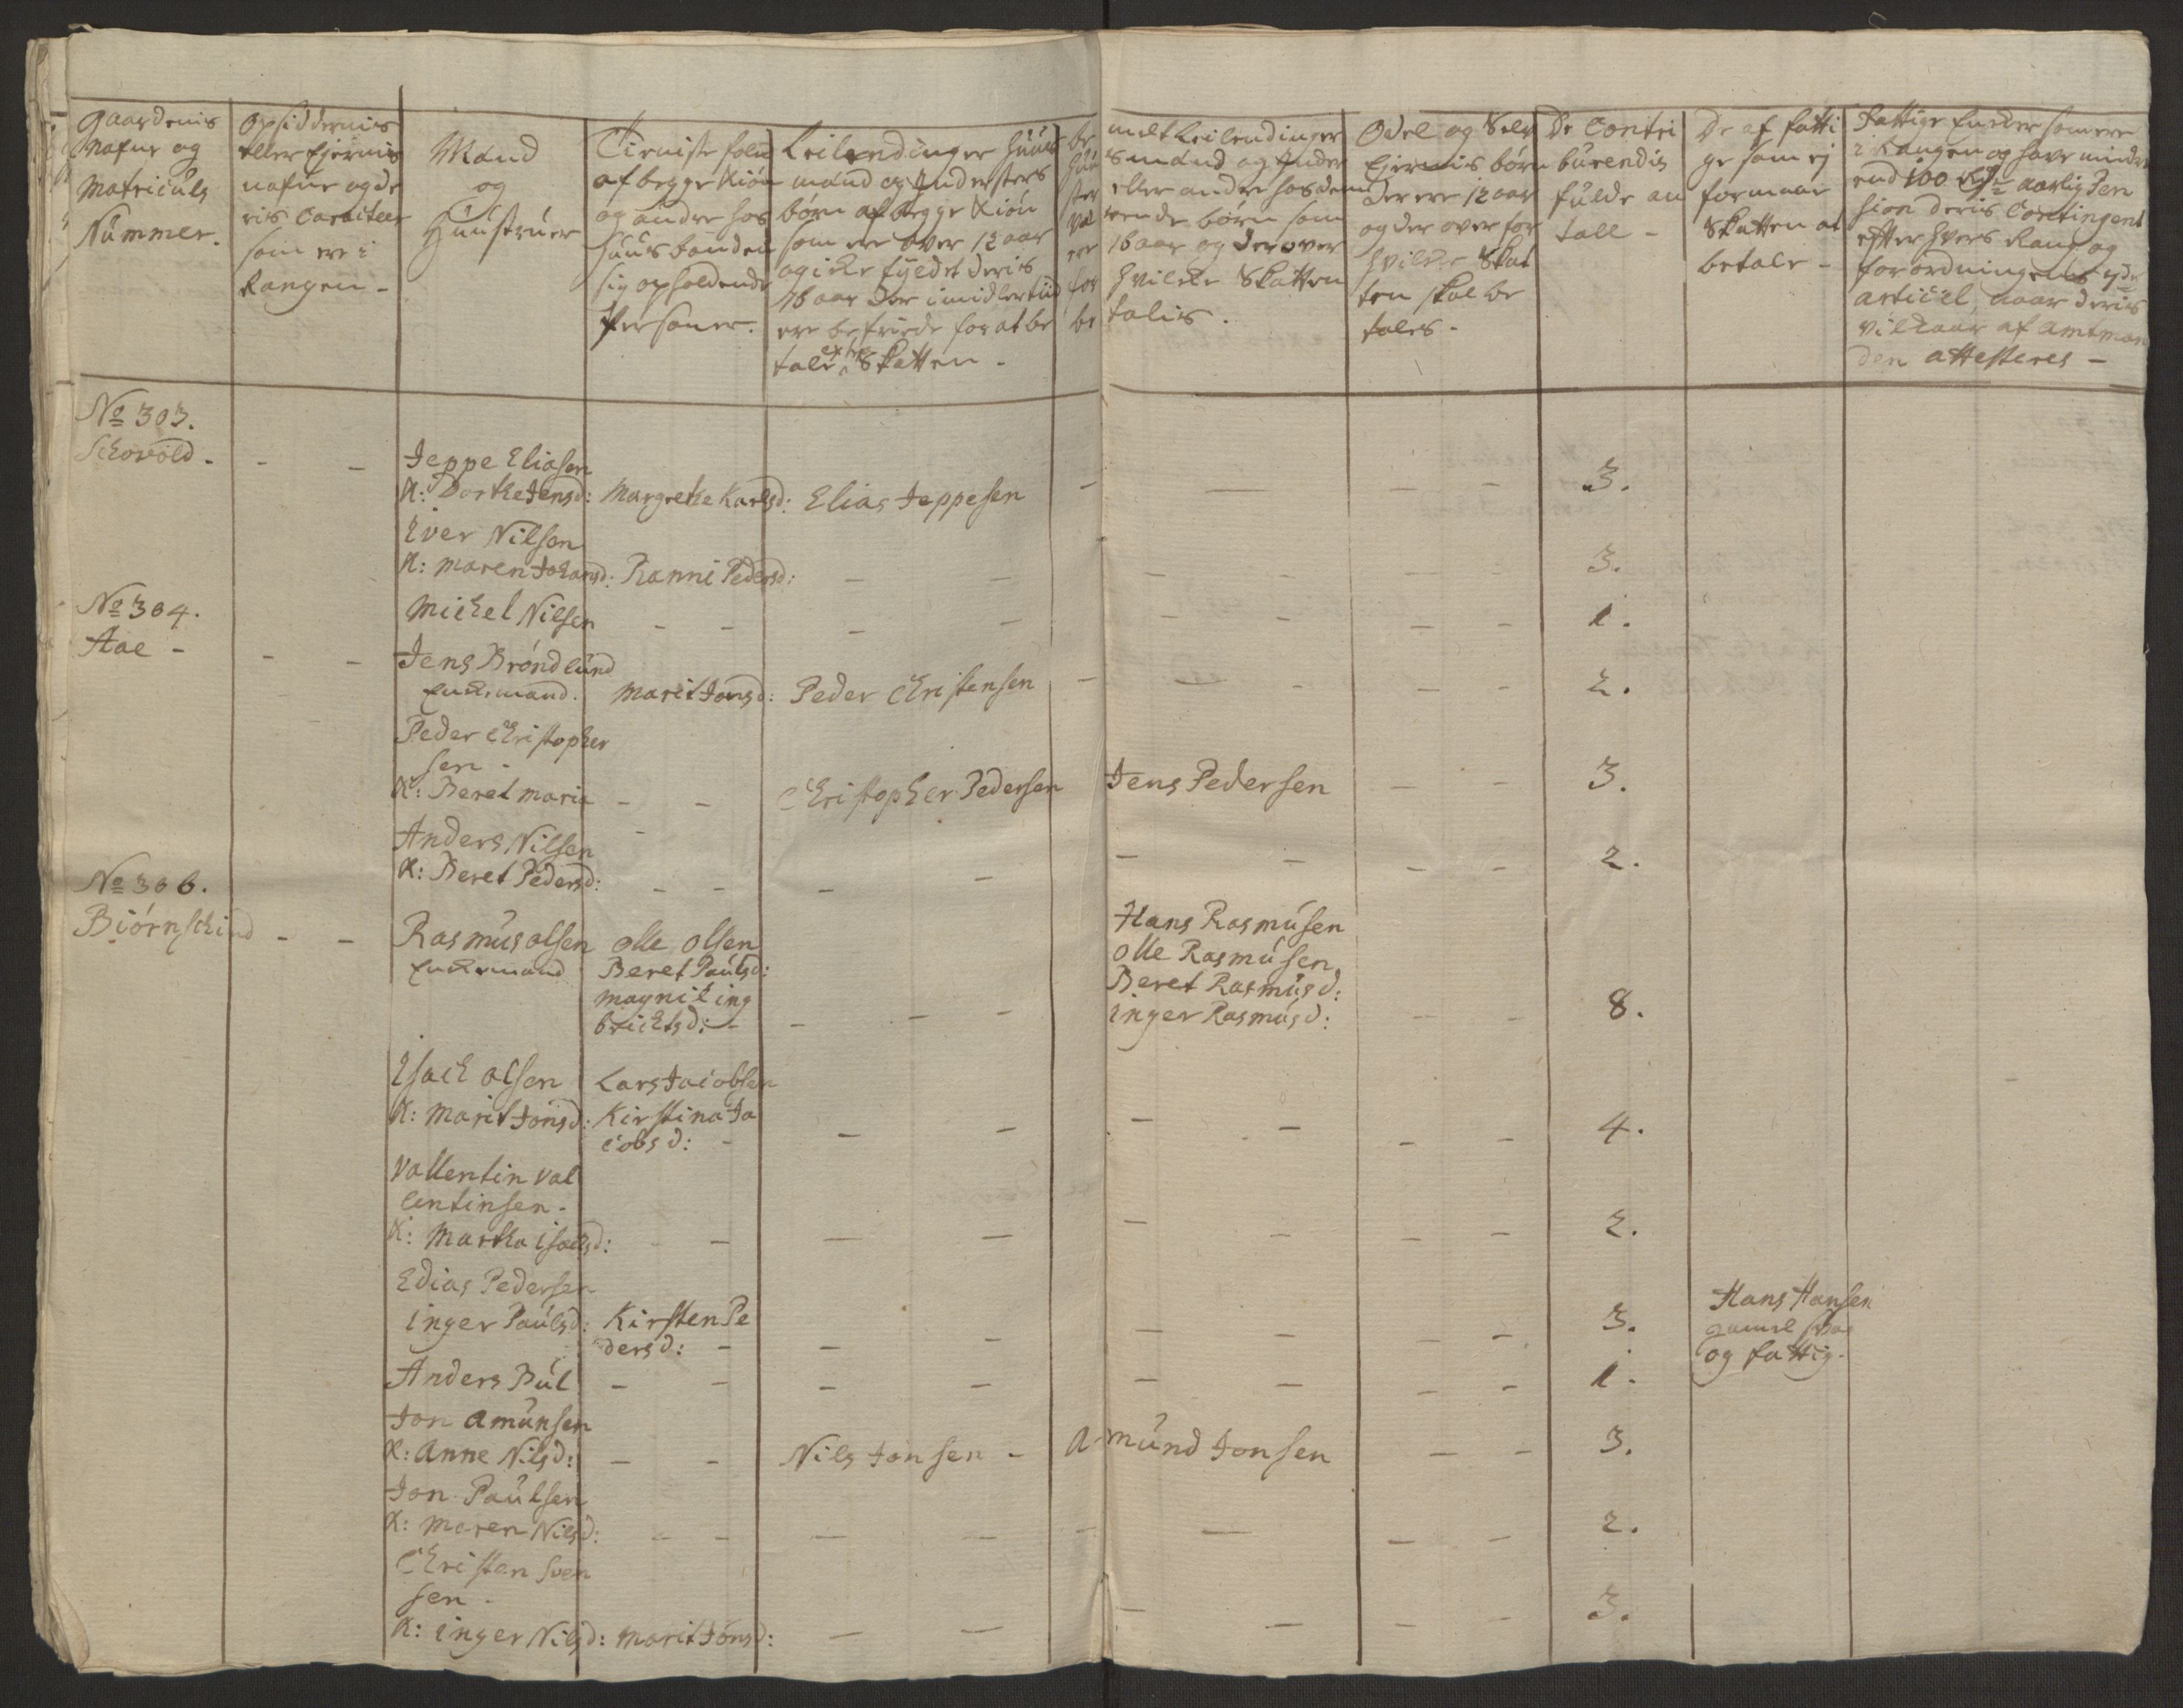 Gaardenis
Nafne og
Matriculs
Nummer.
Opsiddernis
eller Ejernis
nafne og de
ris Caracteer
som ere i
Rangen -
Mænd
og
Huustruer
Tieniste folck
af begge Kiön
og andre hos
huusbonden
sig opholdende
Personer.
Leilendinger huus
mænd og Indersters
börn af begge Kiön
som ere over 12 aar
og icke fyldet deris
16 aar der imidlertiid
ere befriede for at be
tale extra Skatten -
melt Leilendinger
smænd og Inder
eller andre hos dem
rende börn som
16 aar og derover
hvilcke Skatten
talis.
Odel og Selv
Ejernis börn
der ere 12 aar
og der over for
hvilcke Skat
ten skal be
tales -
De Contri
buerendis
fulde an
tall -
De af fatti
ge som ej
formaar
Skatten at
betale -
Fattige Encker som ere
i Rangen og have mindre
end 100 Rdr aarlig Pen
sion deris Contingent
efter hvers Rang og
forordningens 4de
articel, naar deris
vilckaar af Amtman
den attesteres -
No 303.
Schovold - - -
Jeppe Eliasen
K: Dorthe Jensd: Margrethe Karlsd: Elias Jeppesen - - - - 3.
Iver Nilsen
K: Maren Johansd: Ranni Pedersd: - - - - - - 3.
No 304.
Michel Nilsen - - - - - - - - 1.
Aae - - -
Jens Bröndlund
Enckemand. Marit Jonsd: Peder Christensen - - - - - 2.
Peder Christopher
sen -
K: Beret Maria - - Christopher Pedersen Jens Pedersen - - 3.
Anders Nilsen
K: Beret Pedersd: - - - - - - - - 2.
No 306.
Biörnschind - - Rasmus Olsen Olle Olsen Hans Rasmusen
Enckemand Beret Paulsd: Olle Rasmusen
Magnil Ing Beret Rasmusd:
brichtsd: - - - - Inger Rasmusd: - - 8.
Isach Olsen Lars Jacobsen
K: Marit Jonsd: Kirstina Ja
cobsd: - - - - - - - 4.
Vallentin Val
lentinsen -
K: Martha Isachsd: - - - - - - - - 2.
Edias Pedersen
Inger Paulsd: Kirsten Pe
dersd: - - - - - - - 3.
Hans Hansen
gamel svag
og fattig.
Anders Bul - - - - - - - - 1.
Jon Amunsen
K: Anne Nilsd: - - Nils Jonsen - Amund Jonsen - - 3.
Jon Paulsen
K: Maren Nilsd: - - - - - - - - 2.
Christen Sven
sen -
K: Inger Nilsd: Marit Jönsd: - - - - - - 3.